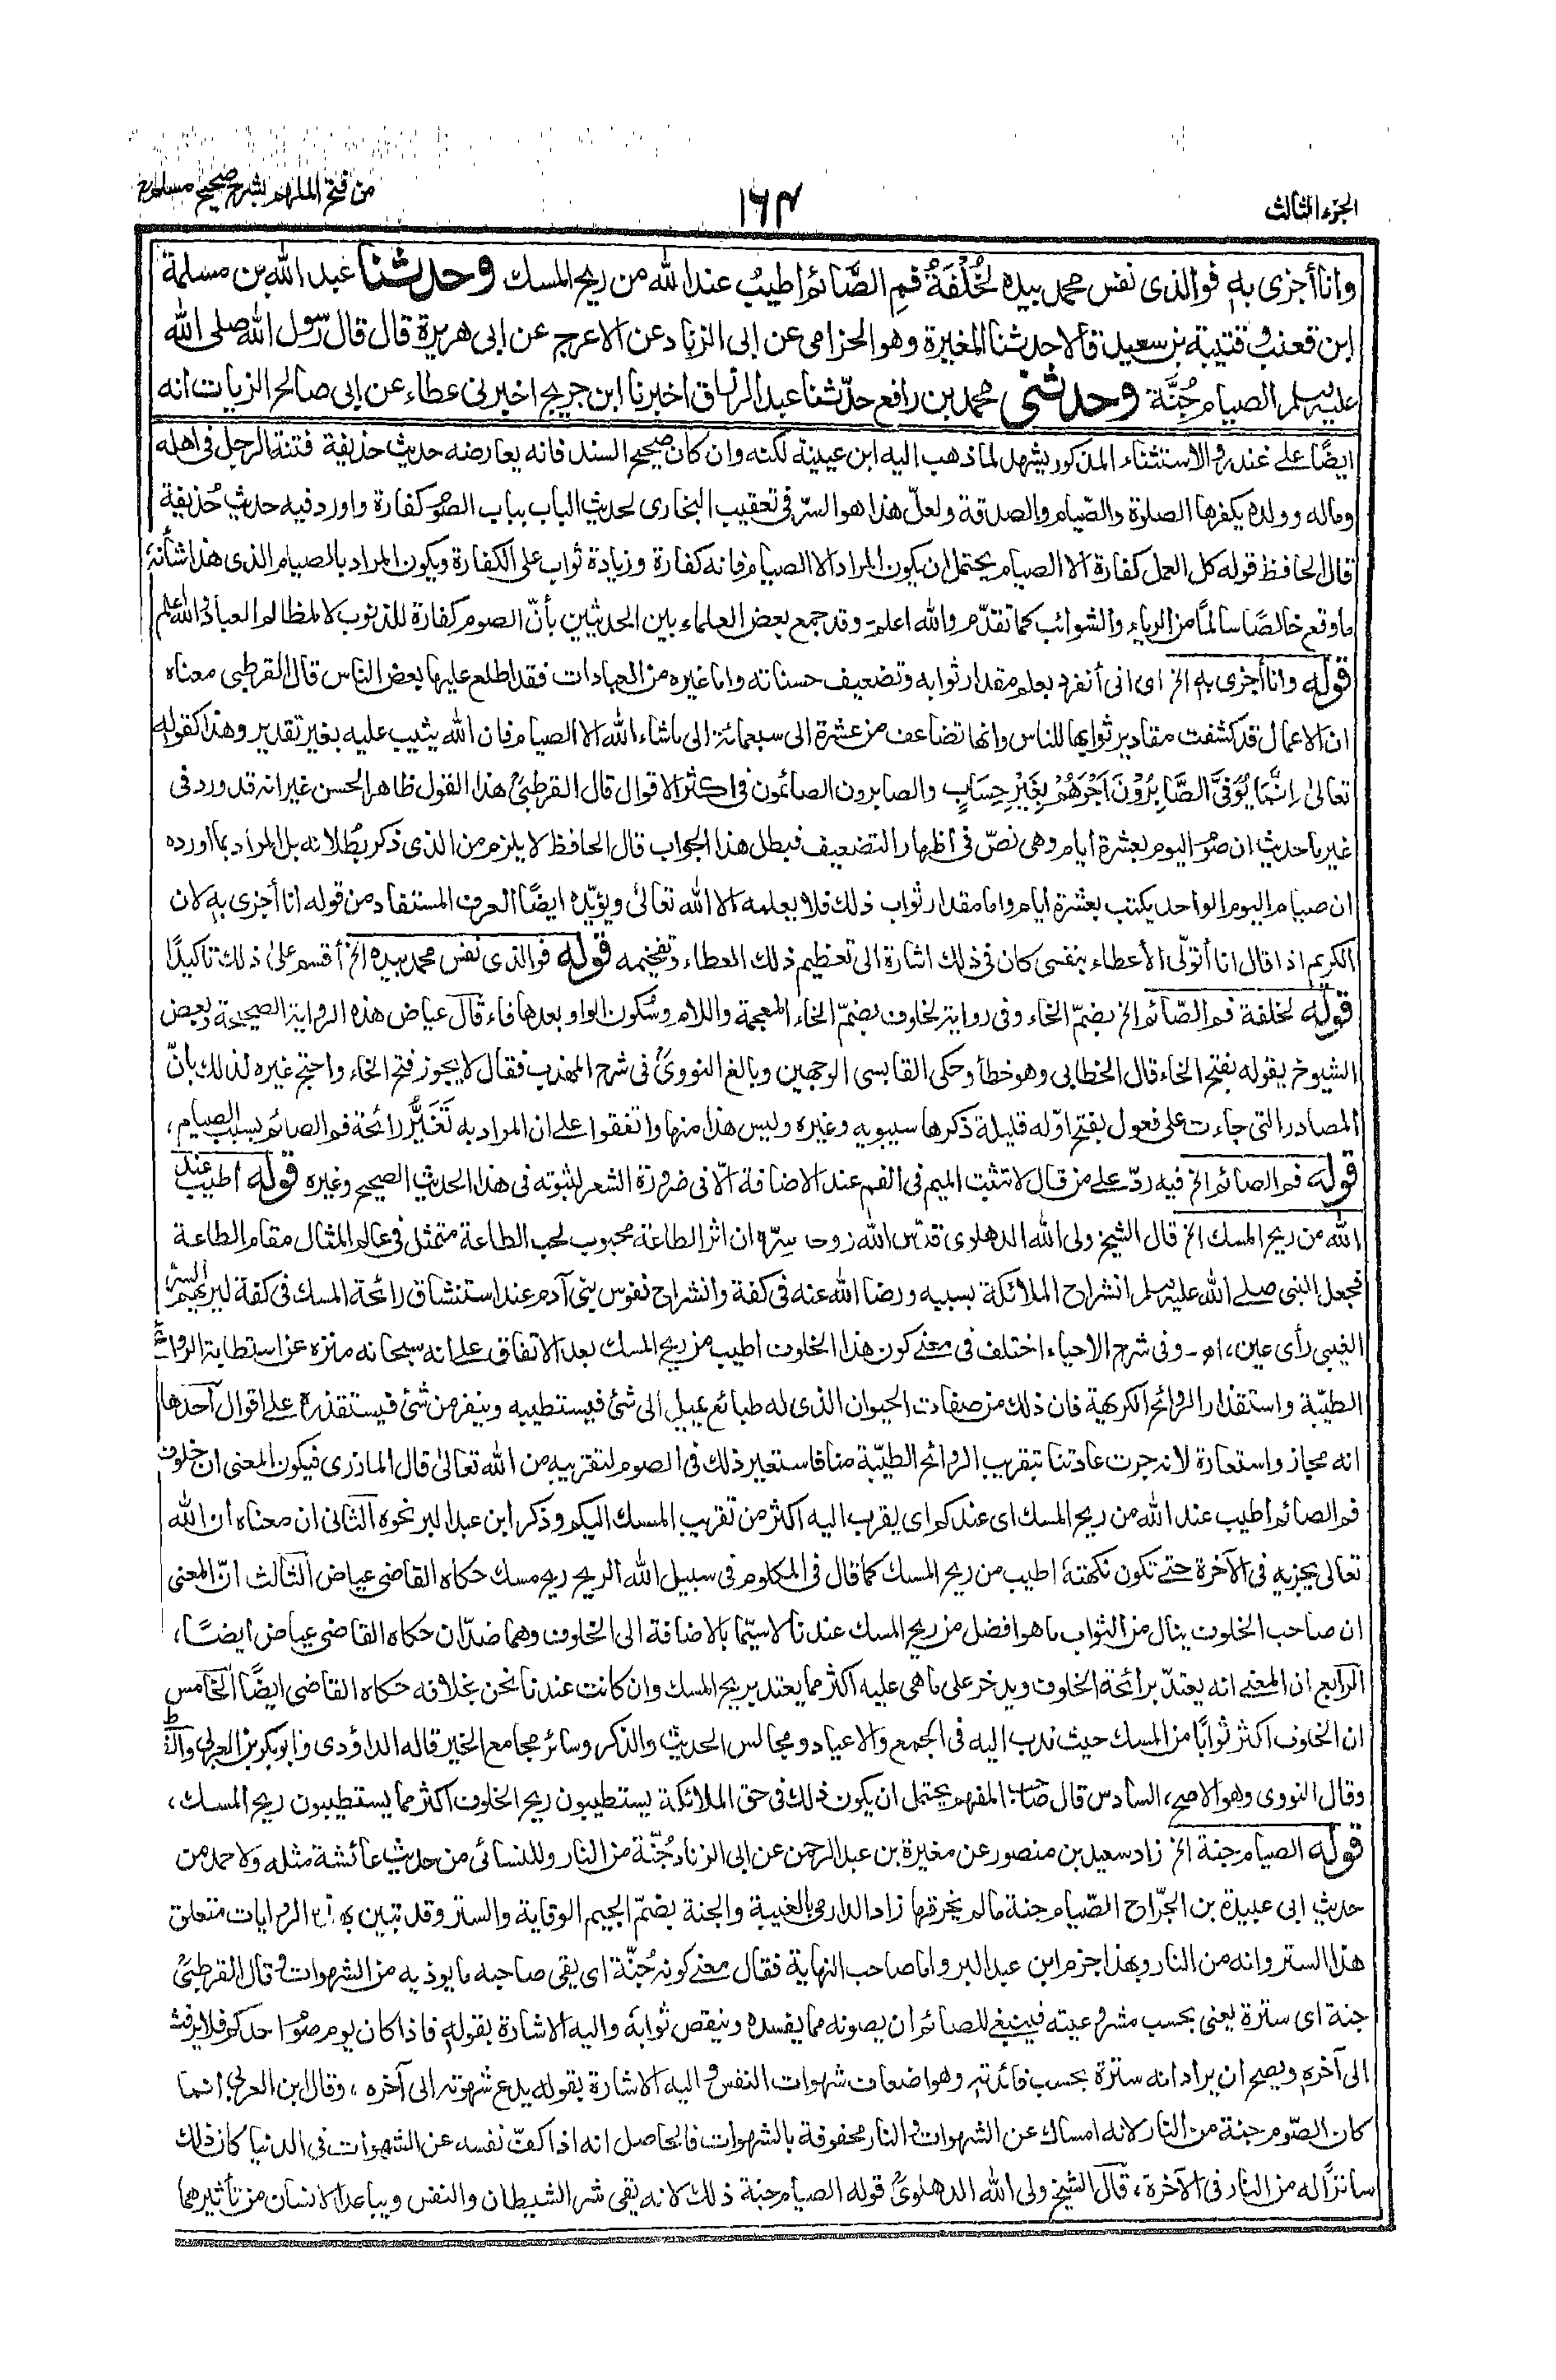 الجزء الثالث
١٦٤
من فتح الملهم بشرح صحيح مسلم
وانا أجزى به فوالذى نفس محمد بيده لَخُلْفَةُ فَمِ الصَّائم اطيبُ عند الله من ريح المسك وحدثنا عبد الله بن مسلمة
ابن قعنب وقتيبة بن سعيد قالا حدثنا المغيرة وهو الحزامى عن ابى الزناد عن الاعرج عن ابى هريرة قال قال رسول الله صلى الله
عليه وسلم الصيام جُنَّة وحدثنى محمد بن رافع حدّثنا عبد الرزاق اخبرنا ابن جريج اخبرنى عطاء عن ابى صالح الزيات انه
ايضًا على غندر والاستثناء المذكور يشهد لما ذهب اليه ابن عيينة لكنه وان كان صحيح السند فانه يعارضه حديث حذيفة فتنة الرجل فى اهله
وماله وولده يكفرها الصلوة والصّيام والصدقة ولعلّ هذا هو السرّ فى تعقيب البخارى لحديث الباب بباب الصوم كفارة واورد فيه حديث حُذيفة
قال الحافظ قوله كل العمل كفارة الا الصيام يحتمل ان يكون المراد الا الصيام فانه كفارة وزيادة ثواب على الكفارة ويكون المراد بالصيام الذى هذا شأنه
ما وقع خالصًا سالمًا من الرياء والشوائب كما تقدّم والله اعلم۔ وقد جمع بعض العلماء بين الحديثين بأنّ الصوم كفارة للذنوب لا لمظالم العباد والله اعلم
قوله وانا أجزى به الخ اى انى أنفرد بعلم مقدار ثوابه وتضعيف حسناته واما غيره من العبادات فقد اطلع عليها بعض الناس قال القرطبى معناه
ان الاعمال قد كشفت مقادير ثوابها للناس وانها تضاعف من عشرة الى سبعمائة الى ما شاء الله الا الصيام فان الله يثيب عليه بغير تقدير وهذا كقوله
تعالىٰ اِنَّمَا يُوَفَّى الصَّابِرُوْنَ اَجْرَهُمْ بِغَيْرِ حِسَابٍ والصابرون الصائمون فى اكثر الاقوال قال القرطبىُّ هذا القول ظاهر الحسن غير انه قد ورد فى
غير ما حديث ان صوم اليوم بعشرة ايام وهى نصّ فى اظهار التضعيف فبطل هذا الجواب قال الحافظ لا يلزم من الذى ذكر بُطلانه بل المراد بما اورده
ان صيام اليوم الواحد يكتب بعشرة ايام واما مقدار ثواب ذلك فلا يعلمه الا الله تعالىٰ ويؤيّده ايضًا العرف المستفاد من قوله انا أجزى به لان
الكريم اذا قال انا أتولّى الأعطاء بنفسى كان فى ذلك اشارة الى تعظيم ذلك العطاء وتفخيمه قوله فوالذى نفس محمد بيده الخ أقسم علىٰ ذلك تأكيدًا
قوله لخلفة فم الصّائم الخ بضمّ الخاء وفى رواية لخلوف بضمّ الخاء المعجمة واللام وسُكون الواو بعدها فاء قال عياض هذه الرواية الصحيحة وبعض
الشيوخ يقوله بفتح الخاء قال الخطابى وهو خطأ وحكى القابسى الوجهين وبالغ النووىُّ فى شرح المهذب فقال لا يجوز فتح الخاء واحتج غيره لذلك بأنّ
المصادر التى جاءت على فعول بفتح اوّله قليلة ذكرها سيبويه وغيره وليس هذا منها واتفقوا على ان المراد به تَغَيُّر رائحة فم الصائم بسبب الصيام،
قوله فم الصائم الخ فيه ردّ على من قال لا تثبت الميم فى الفم عند الاضافة الّا فى ضرورة الشعر لثبوته فى هذا الحديث الصحيح وغيره قوله اطيب عند
الله من ريح المسك الخ قال الشيخ ولى الله الدهلوى قدّس الله روحه وسِرّه ان اثر الطاعة محبوب لحب الطاعة متمثل فى عالم المثال مقام الطاعة
فجعل النبى صلے الله عليه وسلم انشراح الملائكة بسببه ورضا الله عنه فى كفة وانشراح نفوس بنى آدم عند استنشاق رائحة المسك فى كفة ليريهم السرّ
الغيبى رأى عين، اه۔ وفى شرح الاحياء اختلف فى معنے كون هذا الخلوف اطيب من ريح المسك بعد الاتفاق على انه سبحانه منزه عن استطابة الروائح
الطيّبة واستقذار الروائح الكريهة فان ذلك من صفات الحيوان الذى له طبائع يميل الى شئ فيستطيبه وينفر من شئ فيستقذره على اقوال أحدها
انه مجاز واستعارة لانه جرت عادتنا بتقريب الروائح الطيّبة منا فاستعير ذلك فى الصوم لتقريبه من الله تعالىٰ قال المازرى فيكون المعنى ان خلوف
فم الصائم اطيب عند الله من ريح المسك اى عندكم اى يقرب اليه اكثر من تقريب المسك اليكم وذكر ابن عبد البر نحوه الثانى ان معناه ان الله
تعالى يجزيه فى الآخرة حتے تكون نكهته اطيب من ريح المسك كما قال فى المكلوم فى سبيل الله الريح ريح مسك حكاه القاضى عياض الثالث انّ المعنى
ان صاحب الخلوف ينال من الثواب ما هو افضل من ريح المسك عندنا لاسيّما بالاضافة الى الخلوف وهما ضدّان حكاه القاضى عياض ايضًا،
الرابع ان المعنے انه يعتدّ برائحة الخلوف ويدخر على ما هى عليه اكثر مما يعتد بريح المسك وان كانت عندنا نحن بخلافه حكاه القاضى ايضًا الخامس
ان الخلوف اكثر ثوابًا من المسك حيث ندب اليه فى الجمع والاعياد ومجالس الحديث والذكر وسائر مجامع الخير قاله الداؤدى وابوبكر بن العربى
وقال النووى وهو الاصح، السادس قال صاحب المفهم يحتمل ان يكون ذلك فى حق الملائكة يستطيبون ريح الخلوف اكثر مما يستطيبون ريح المسك،
قوله الصيام جنة الخ زاد سعيد بن منصور عن مغيرة بن عبد الرحمن عن ابى الزناد جُنّة من النار وللنسائى من حديث عائشة مثله ولاحمد من
حديث ابى عبيدة بن الجرّاح الصّيام جنة ما لم يخرقها زاد الدارمى بالغيبة والجنة بضمّ الجيم الوقاية والستر وقد تبين بهذه الروايات متعلق
هذا الستر وانه من النار وبهذا جزم ابن عبد البر واما صاحب النهاية فقال معنے كونه جُنّة اى يقى صاحبه ما يوذيه من الشهوات وقال القرطبىُّ
جنة اى سترة يعنى بحسب مشروعيته فينبغے للصائم ان يصونه مما يفسده وينقص ثوابه واليه الاشارة بقوله فاذا كان يوم صوم احدكم فلا يرفث
الى آخره ويصح ان يراد انه سترة بحسب فائدته وهو اضعاف شهوات النفس واليه الاشارة بقوله يدع شهوته الى آخره، وقال ابن العربى انما
كان الصّوم جنة من النار لانه امساك عن الشهوات والنار محفوفة بالشهوات فالحاصل انه اذا كفّ نفسه عن الشهوات فى الدنيا كان ذلك
ساترًا له من النار فى الآخرة، قال الشيخ ولى الله الدهلوىُّ قوله الصيام جنة ذلك لانه يقى شر الشيطان والنفس ويباعد الانسان من تأثيرهما